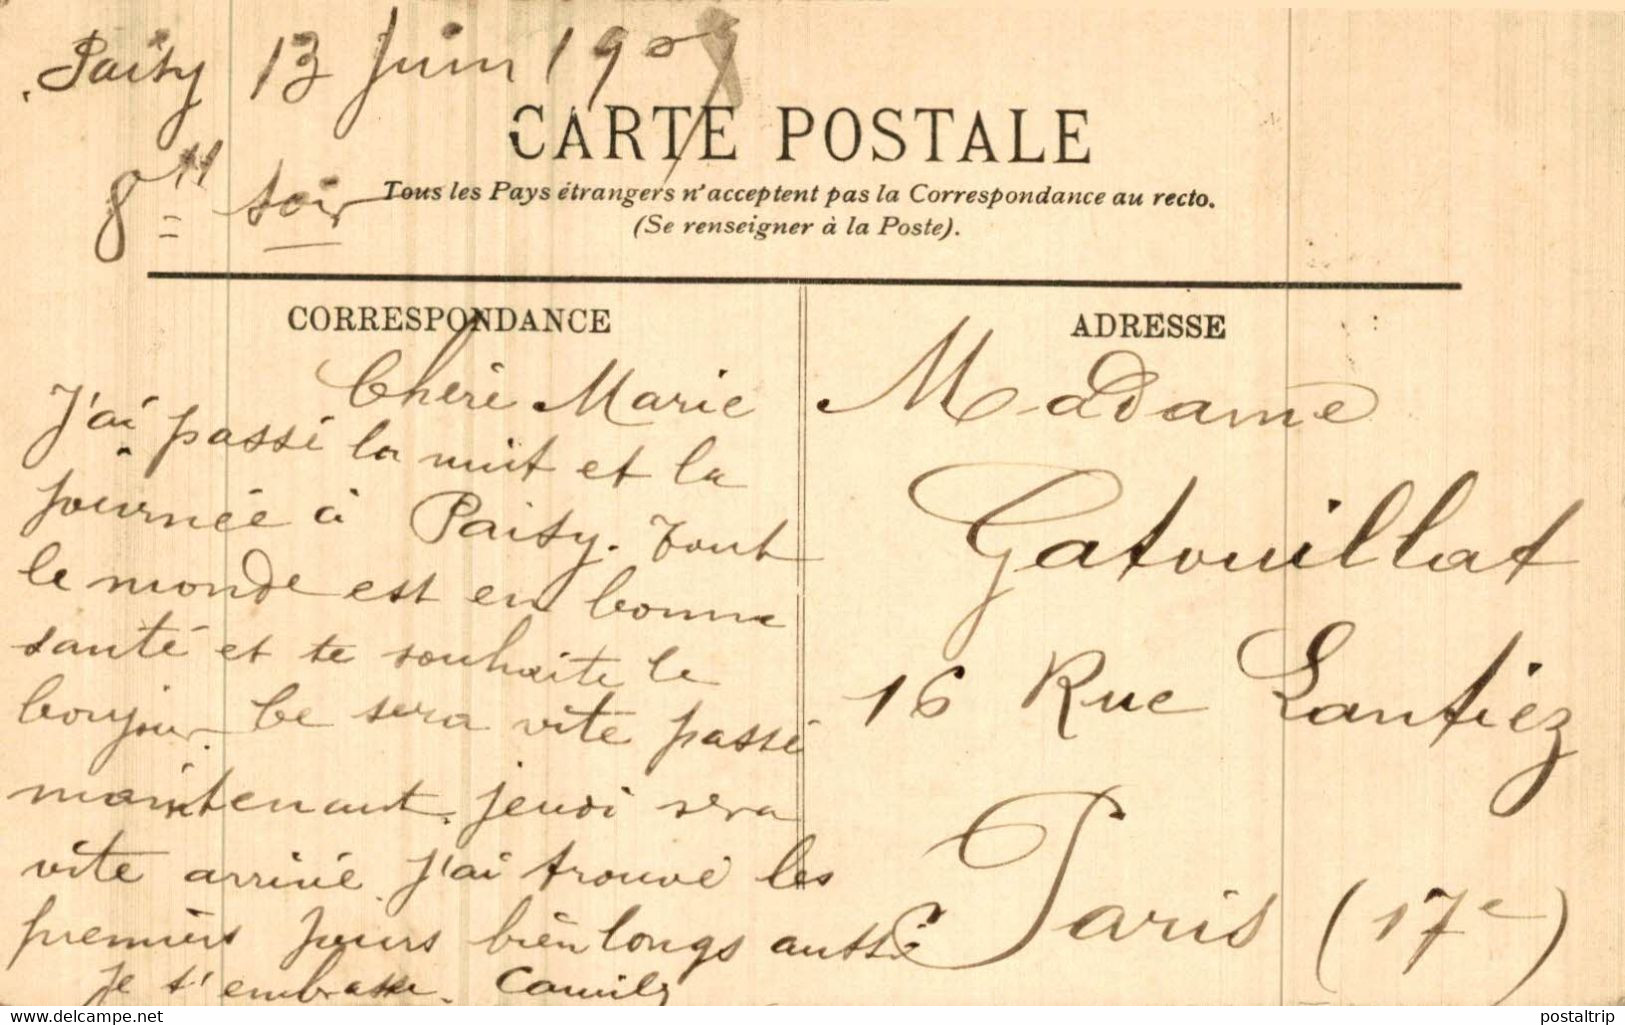 Paisy 13 Juin 1908
CARTE POSTALE
8H soir
Tous les Pays étrangers n'acceptent pas la Correspondance au recto.
(Se renseigner à la Poste).
CORRESPONDANCE
Chère Marie
J'ai passé la nuit et la
journée à Paisy. Tout
le monde est en bonne
santé et te souhaite le
bonjour. Ce sera vite passé
maintenant. jeudi sera
vite arrivé. J'ai trouvé les
premiers jours bien longs aussi
Je t'embrasse. Camille
ADRESSE
Madame
Gatouillat
16 Rue Lantiez
Paris (17e)
www.delcampe.net
postaltrip